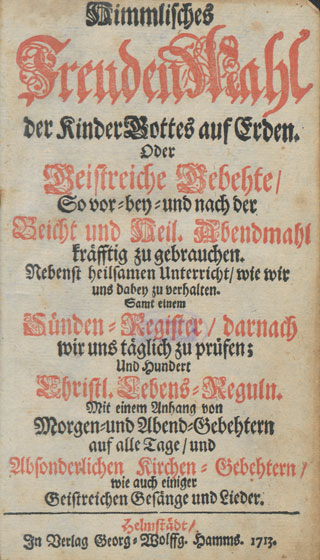 Himmlisches
FreudenMahl
der Kinder Gottes auf Erden.
Oder
Geistreiche Gebehte/
So vor-bey-und nach der
Beicht und Heil. Abendmahl
kräfftig zu gebrauchen.
Nebenst heilsamen Unterricht/ wie wir
uns dabey zu verhalten.
Samt einem
Sünden-Register/ darnach
wir uns täglich zu prüfen;
Und Hundert
Christl. Lebens-Reguln.
Mit einem Anhang von
Morgen-und Abend-Gebehtern
auf alle Tage/ und
Absonderlichen Kirchen-Gebehtern/
wie auch einiger
Geistreichen Gesänge und Lieder.
Helmstädt/
In Verlag Georg-Wolffg. Hamms. 1713.